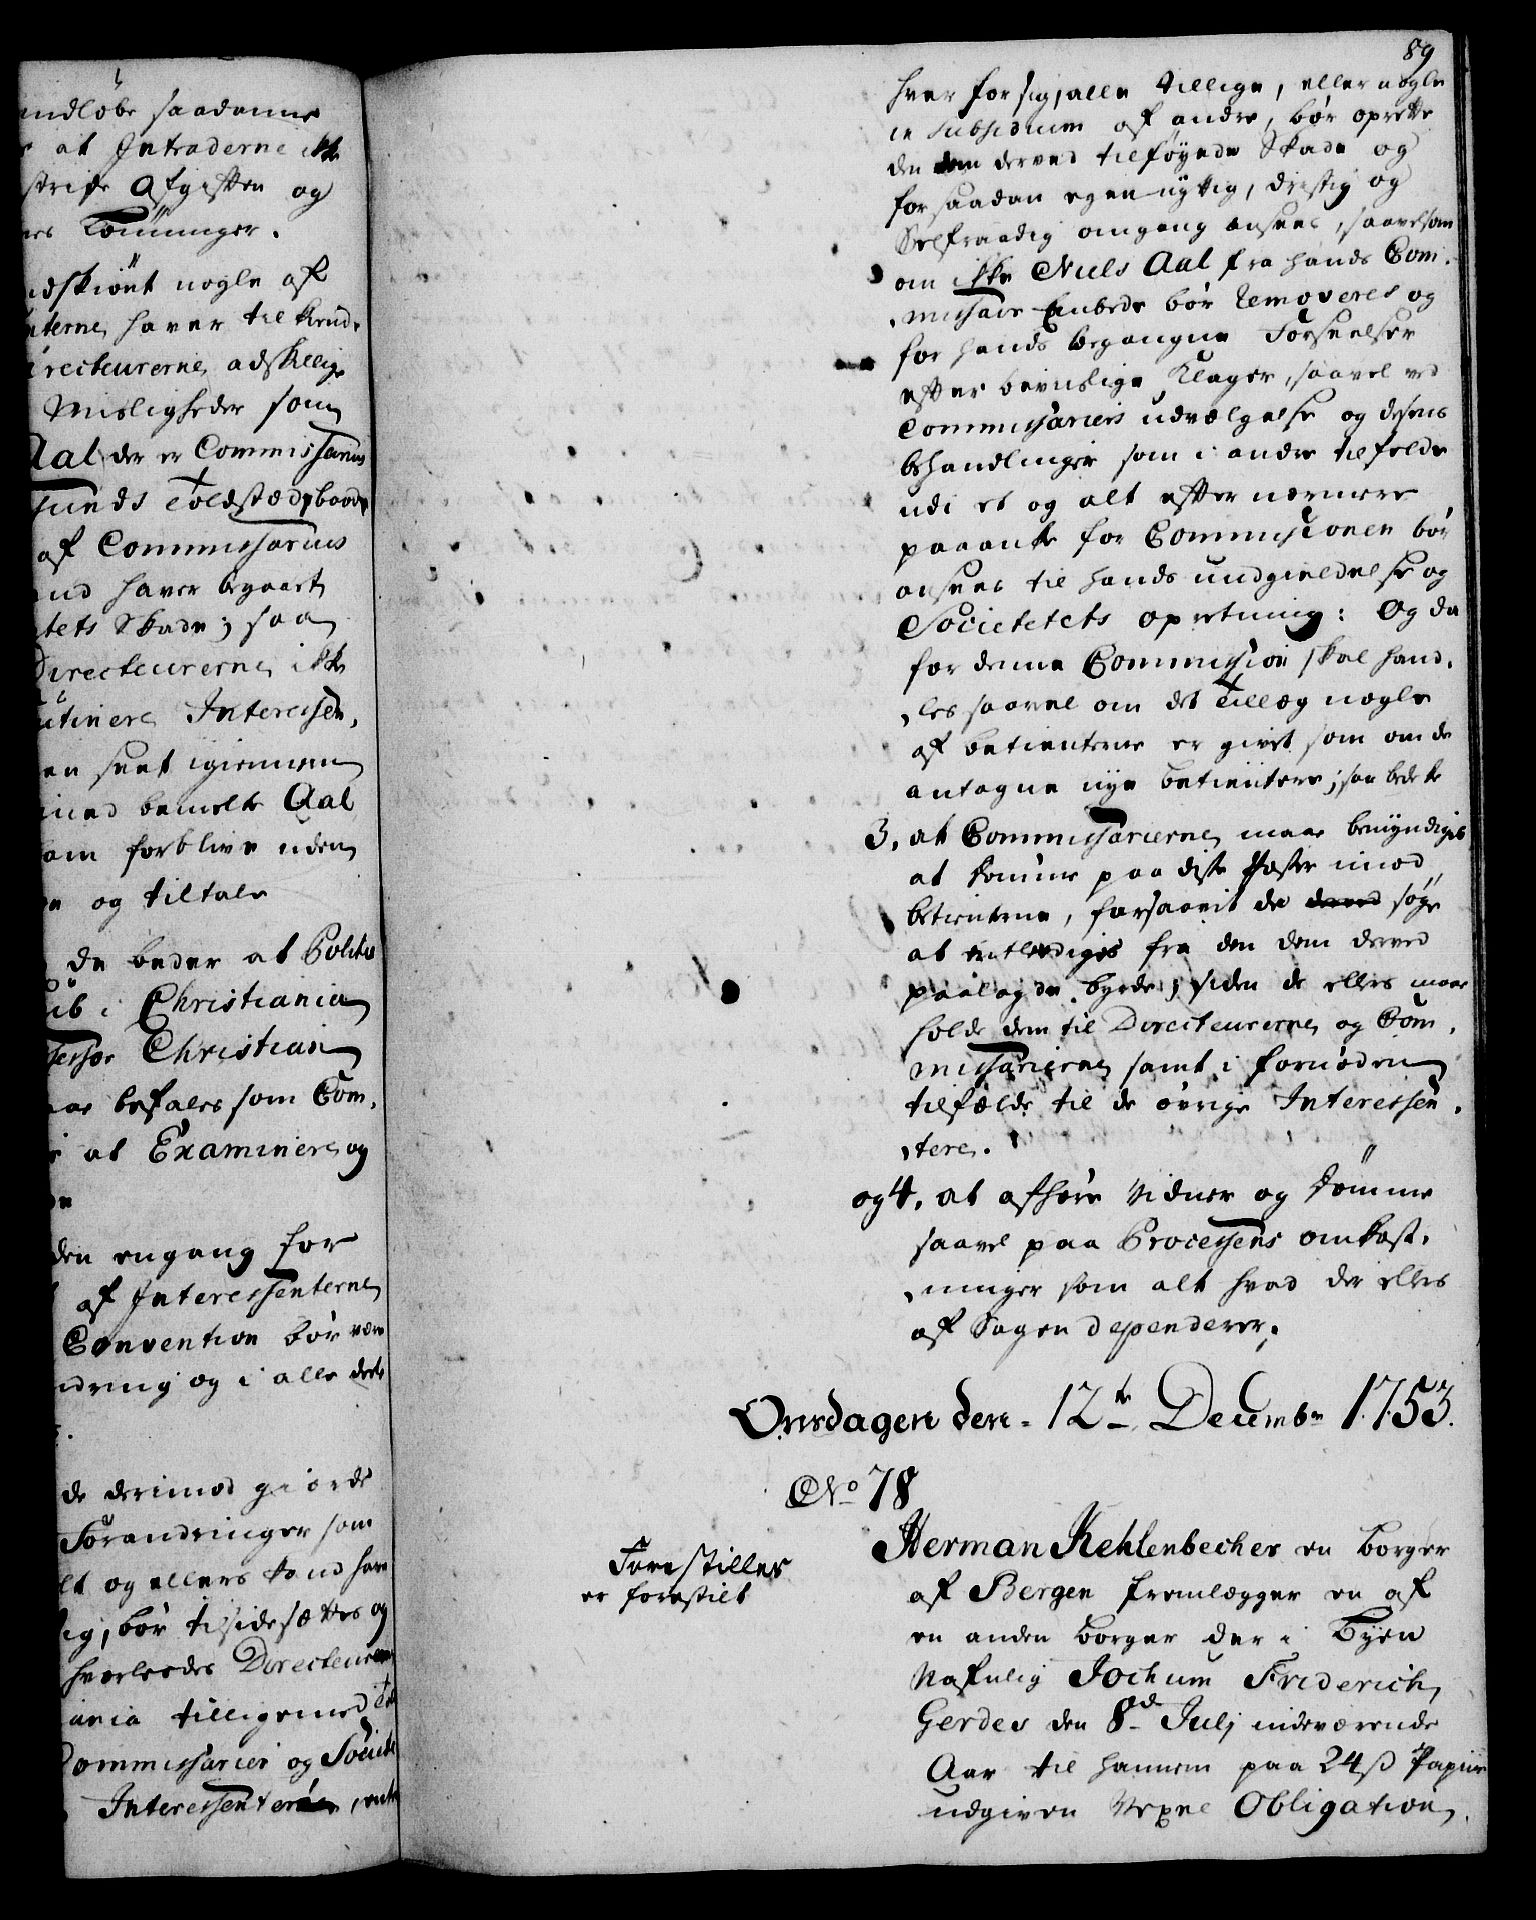 indløbe saadanne
at Intraderne ikke
Afgiften og
Tønninger.
idskiønt nogle af
nterne haver tilkiend.
irecteurerne adskillige
Misligheder som
Aal der er Commissarius
sunds Toldstæd, baade
af Commissarius
and haver begaaet
tets Skade; saa
Directeurerne ikke
Interessen,
en seet igiennem
ined bemelte Aal
forblive uden
og tiltale
de beder at Politie
i Christiania
Christian
befales som Com,
at Examinere og
den engang for
af Interessenterne
Convention bør være
ndring og i alle deele
de derimod giorde
Forandringer som
og ellers
ig, bør tilsidesættes og
hvorledes Directeurerne
ania tilligemed
Commissarier og Societe
Interessenterne, enten
89
hver for sig, alle tillige, eller nogle
in subsidium af andre, bør oprette
den dem derved tilføyede Skade og
for saadan egennyttig, driftig og
Selfraadig omgang ansees, saavelsom
om ikke Niels Aal fra hands Com,
,missair Embede bør removeres og
for hands begangne Forseelser
efter beviislige Klager, saavel ved
Commissariers udvælgelse og desens
behandlinger som i andre tilfelde
udi et og alt efter nærmere
paaanke for Commissionen bør
ansees til hands undgieldelse og
Societetets opretning: Og da
for denne Commission skal hand,
,les saavel om det Tillæg nogle
af betienterne er givet som om de
antagne nye betientere; saa bedet
3, at Commissarierne maae bemyndiges
at kiende paa disse Poster imod
betienterne, forsaavit de derved søge
at entlediges fra den dem derved
paalagde byrde, siden de ellers maae
holde dem til Directeurerne og Com,
missarierne samt i fornøden
tilfælde til de øvrige Interessen,
,tere.
og 4, at afhøre Vidner og dømme
saavel paa Processens omkost,
,ninger som alt hvad der ellers
af Sagen dependerer.
Onsdagen den 12te Decembr 1753.
No 78
Forestilles
er forestilt
Herman Kehlenbecher en borger
af Bergen fremlægger en af
en anden borger der i Byen
Nafnlig Jochum Friderich
Gerdes den 8de Julj indeværende
Aar til hannem paa 24 ß Papiir
udgiven Vexel Obligation,